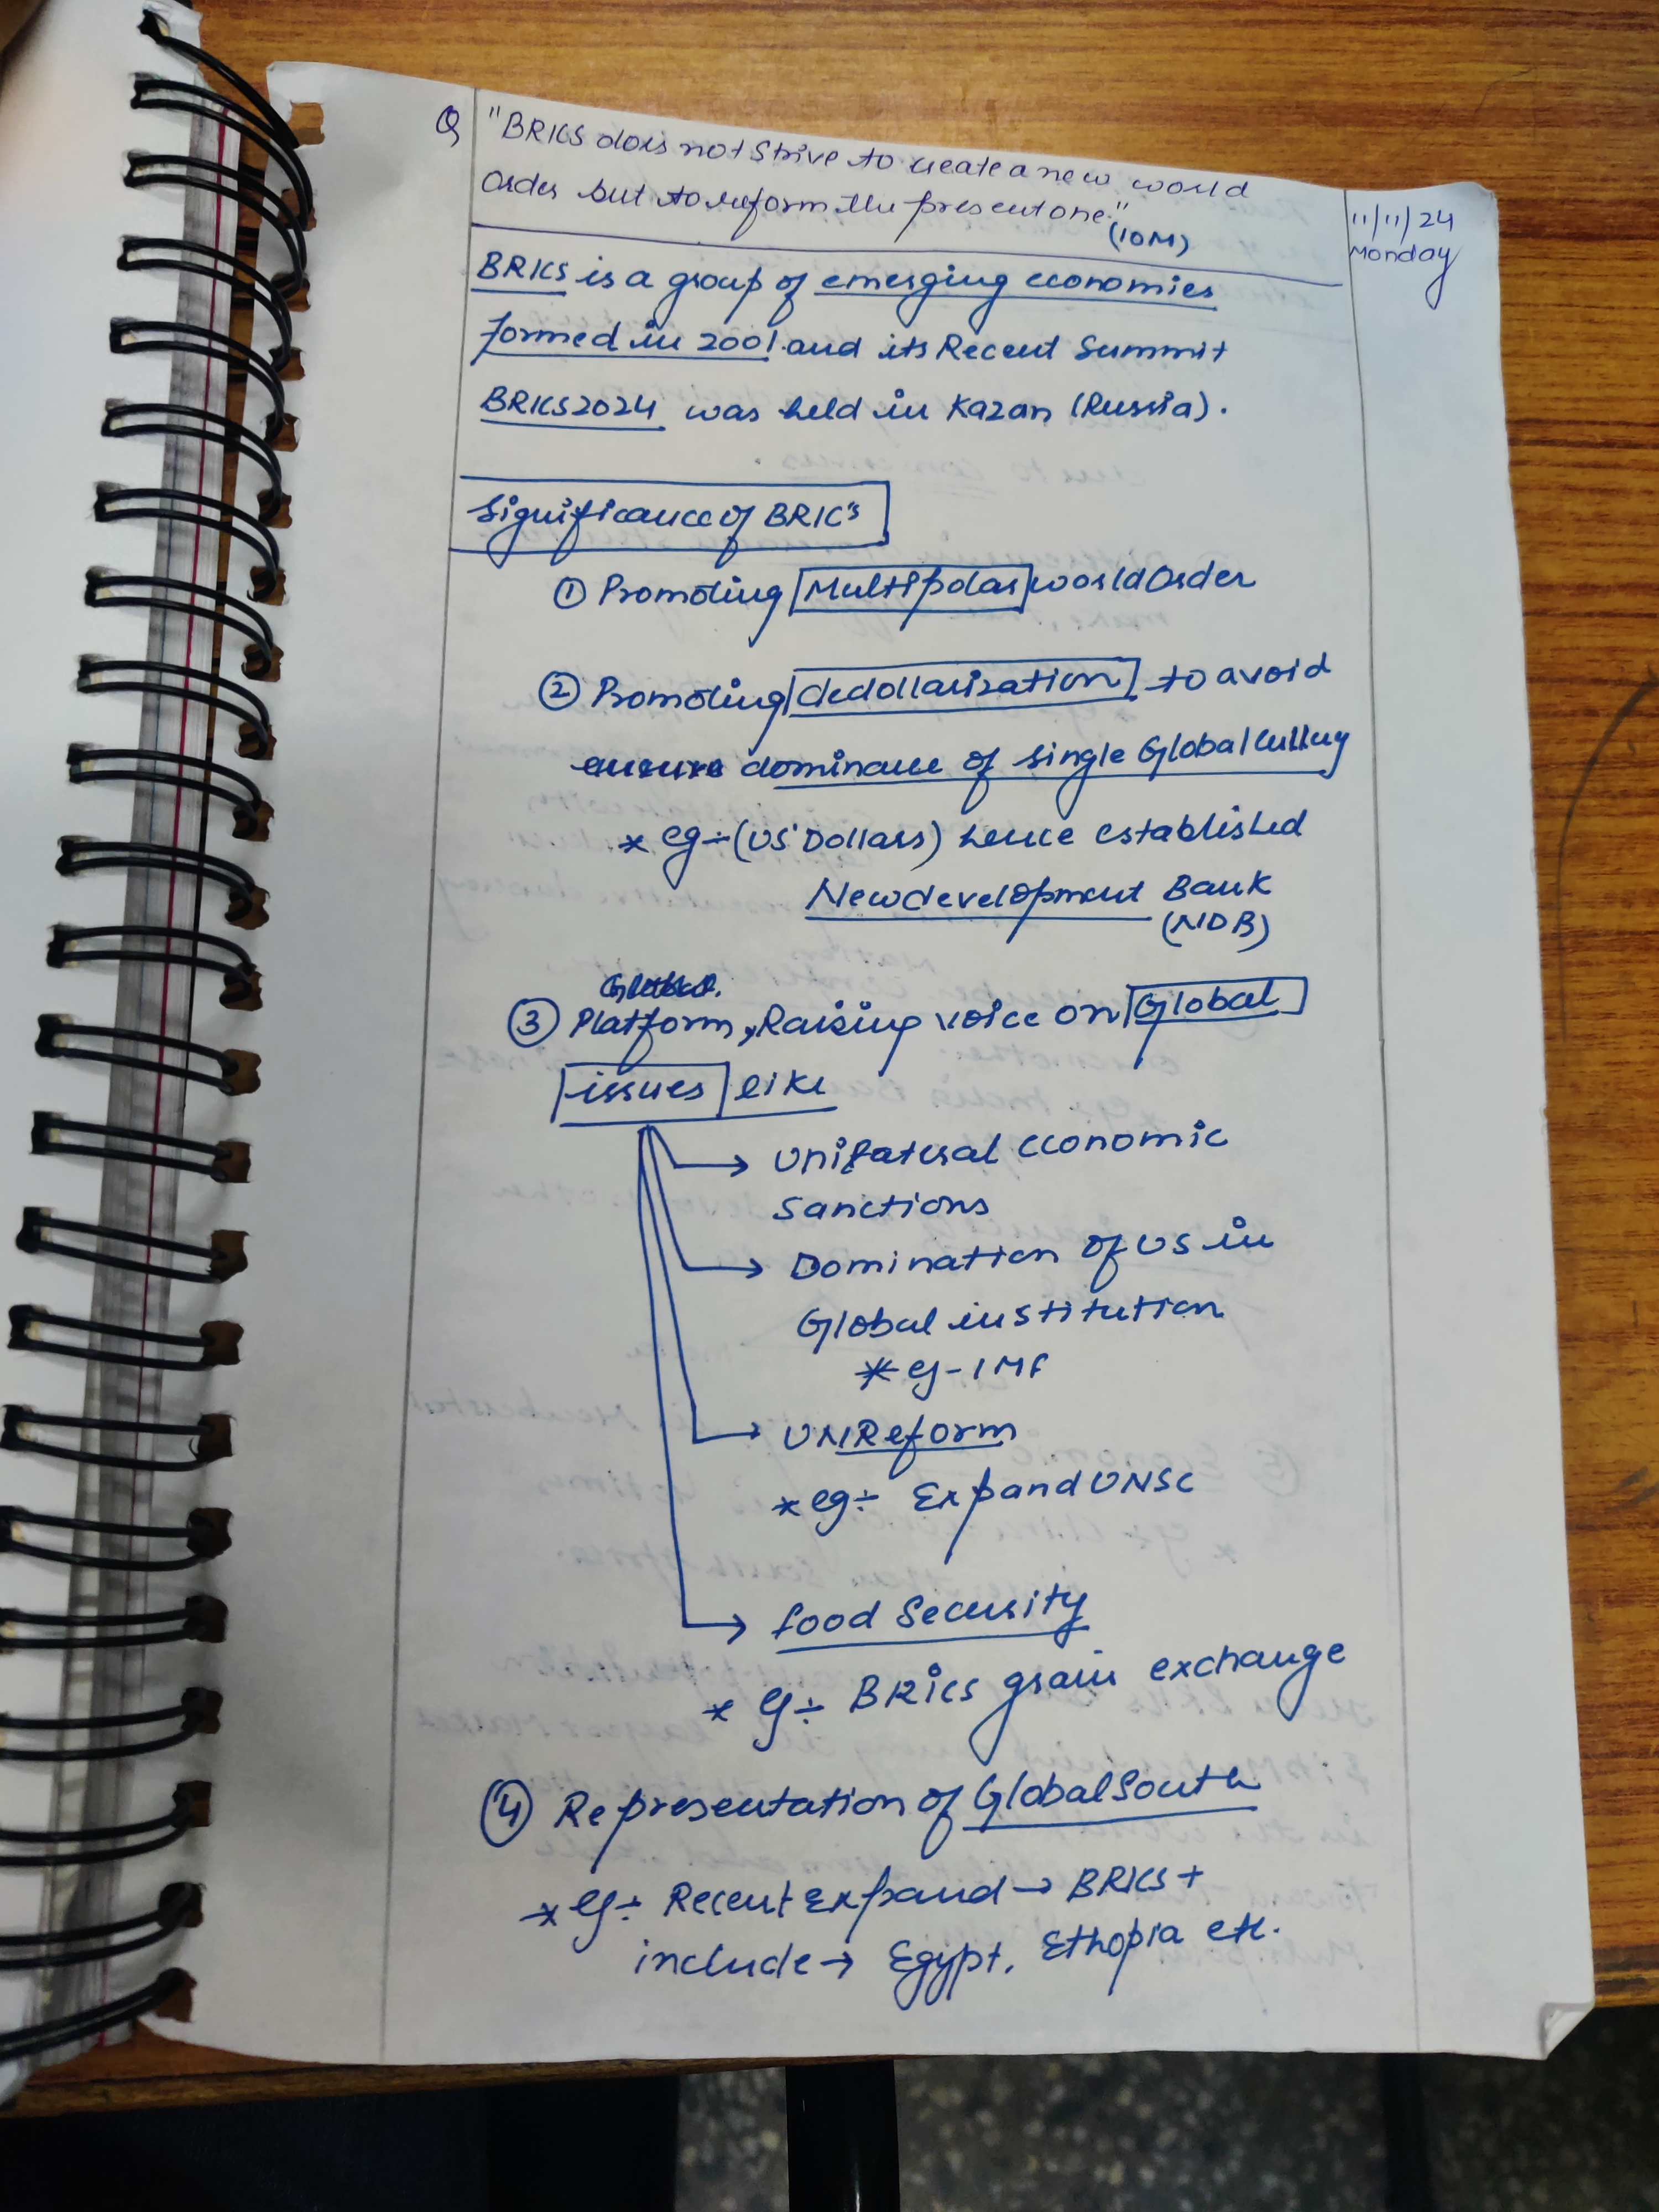 Q "BRICS does not strive to create a new world
order but to reform the present one."
(10M)
11/11/24
Monday
BRICS is a group of emerging economies
formed in 2001 and its Recent Summit
BRICS2024 was held in Kazan (Russia).
Significance of BRIC's
① Promoting Multipolar world Order
② Promoting dedollarization to avoid
dominance of single Global
* eg÷ (US Dollars) hence established
New development Bank
(NDB)
③ Platform, Raising voice on Global
issues like
→ Unilateral economic
Sanctions
→ Domination of US in
Global institution
* eg - IMF
→ UN Reform
* eg÷ Expand UNSC
→ food Security
* eg÷ BRICS grain exchange
④ Representation of Global South
* eg÷ Recent Expand → BRICS+
include → Egypt, Ethopia etc.